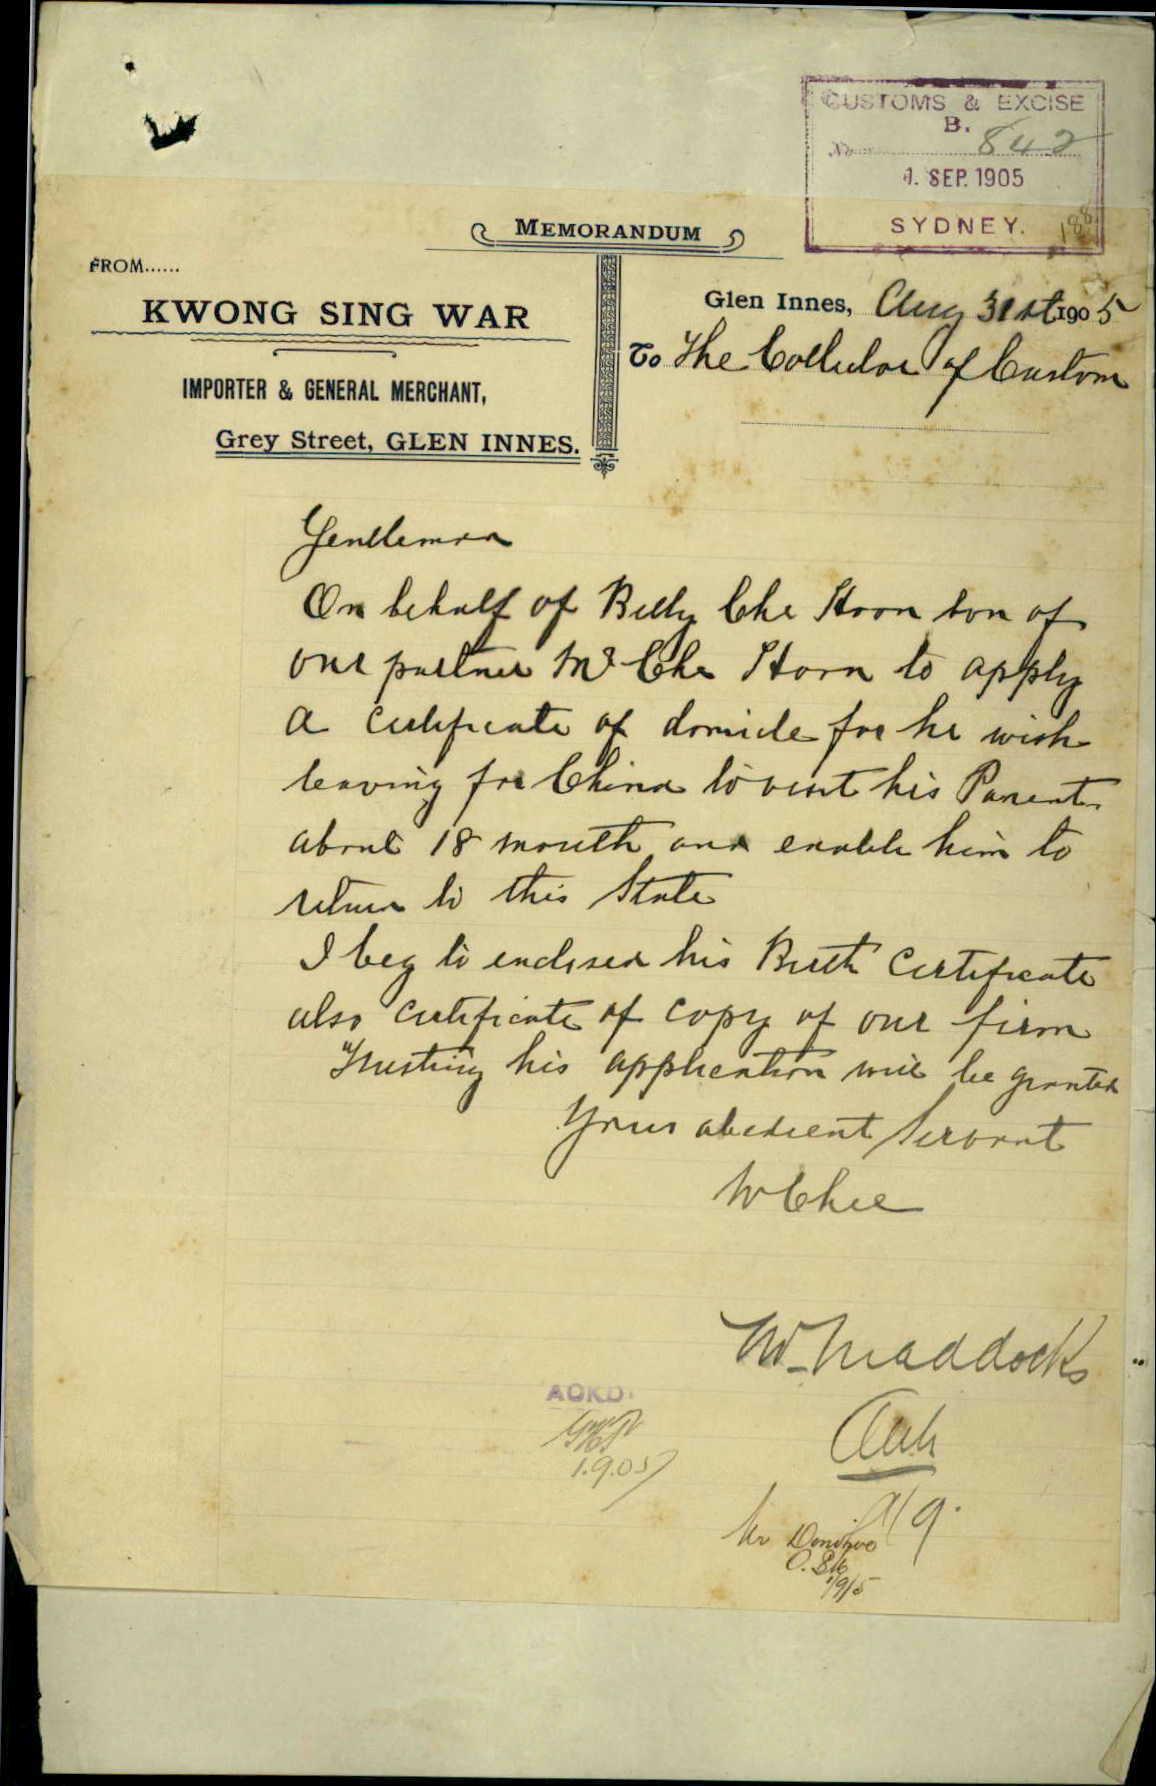 CUSTOMS & EXCISE
B.
No 842
1. SEP. 1905
SYDNEY.
MEMORANDUM
FROM......
KWONG SING WAR
IMPORTER & GENERAL MERCHANT,
Grey Street, GLEN INNES.
Glen Innes, Aug 31st 1905
To The Collector of Custom
Gentleman
On behalf of Billy Che Hoon son of
our partner Mr Che Hoon to apply
a certificate of domicile for he wish
leaving for China to visit his Parents
about 18 month and enable him to
return to this State
I beg to enclosed his Birth Certificate
also certificate of copy of our firm
Trusting his application will be granted
Your obedient Servant
W Chee
W Maddocks
ACKD.
1.9.05
1/9/5